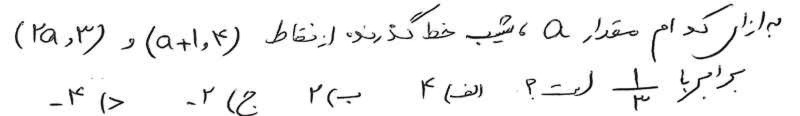 به ازای کدام مقدار a ، شیب خط گذرنده از نقاط (a+۱,۴) و (۲a,۳)
برابر با ۱/۳ است؟ الف) ۴ ب) ۲ ج) -۲ د) -۴